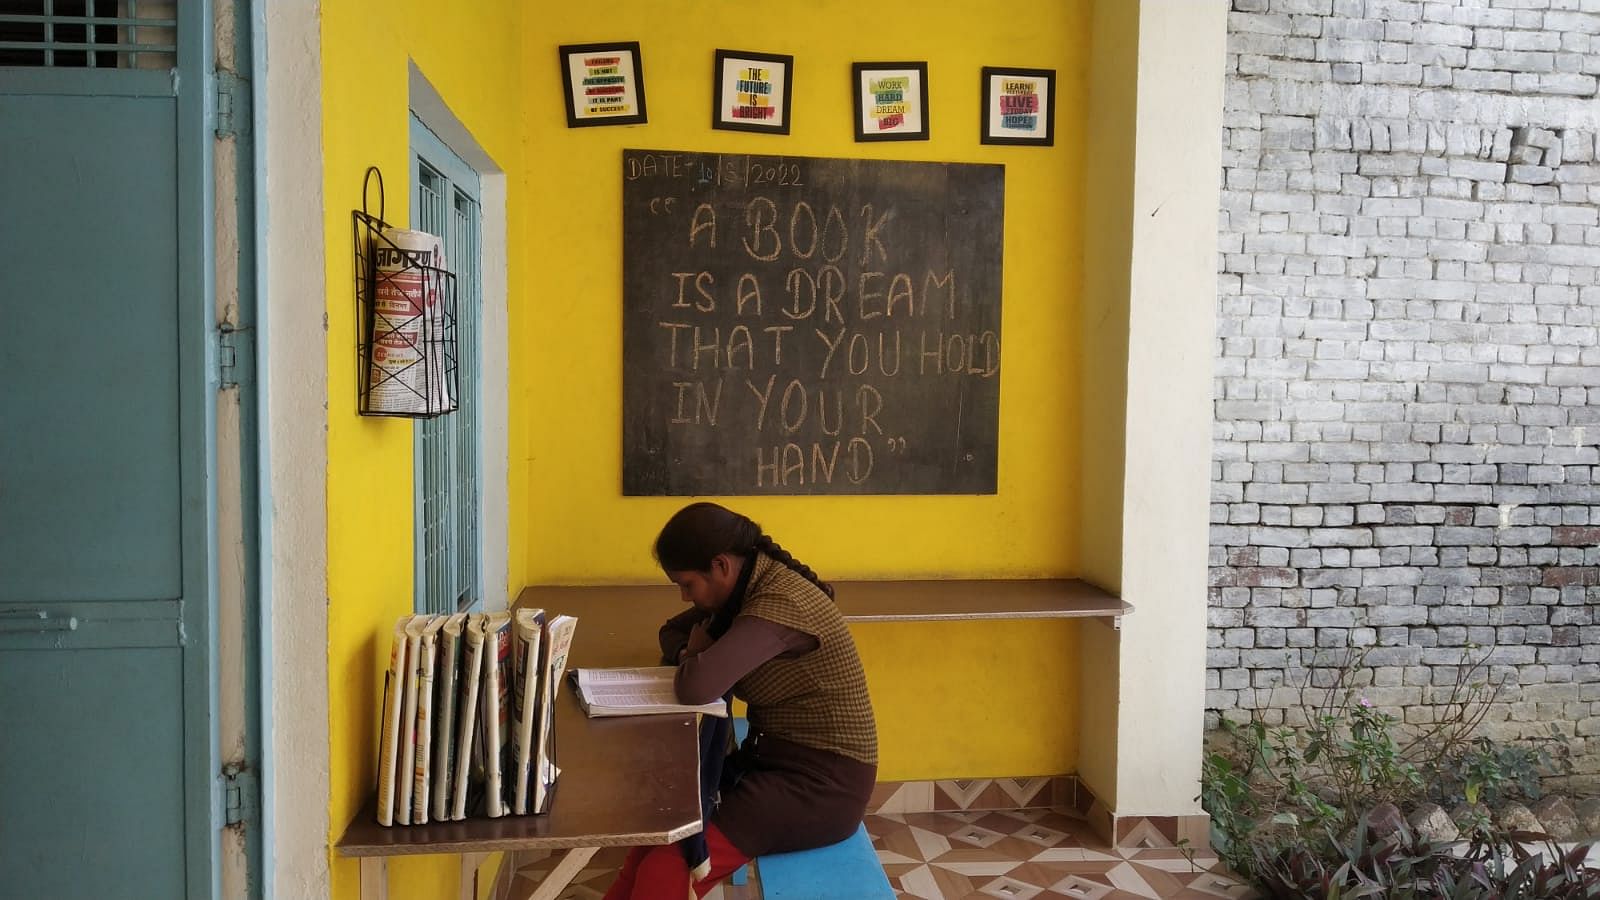 FAILURE
IS NOT
THE OPPOSITE
OF SUCCESS
IT IS PART
OF SUCCESS
THE
FUTURE
IS
BRIGHT
WORK
HARD
DREAM
BIG
LEARN FROM
YESTERDAY
LIVE
TODAY
HOPE FOR
TOMORROW
DATE- 10/3/2022
“A BOOK
IS A DREAM
THAT YOU HOLD
IN YOUR
HAND”
जागरण